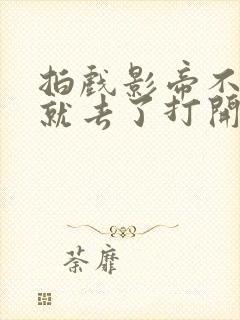 拍戏影帝不
就去了打開
荼靡